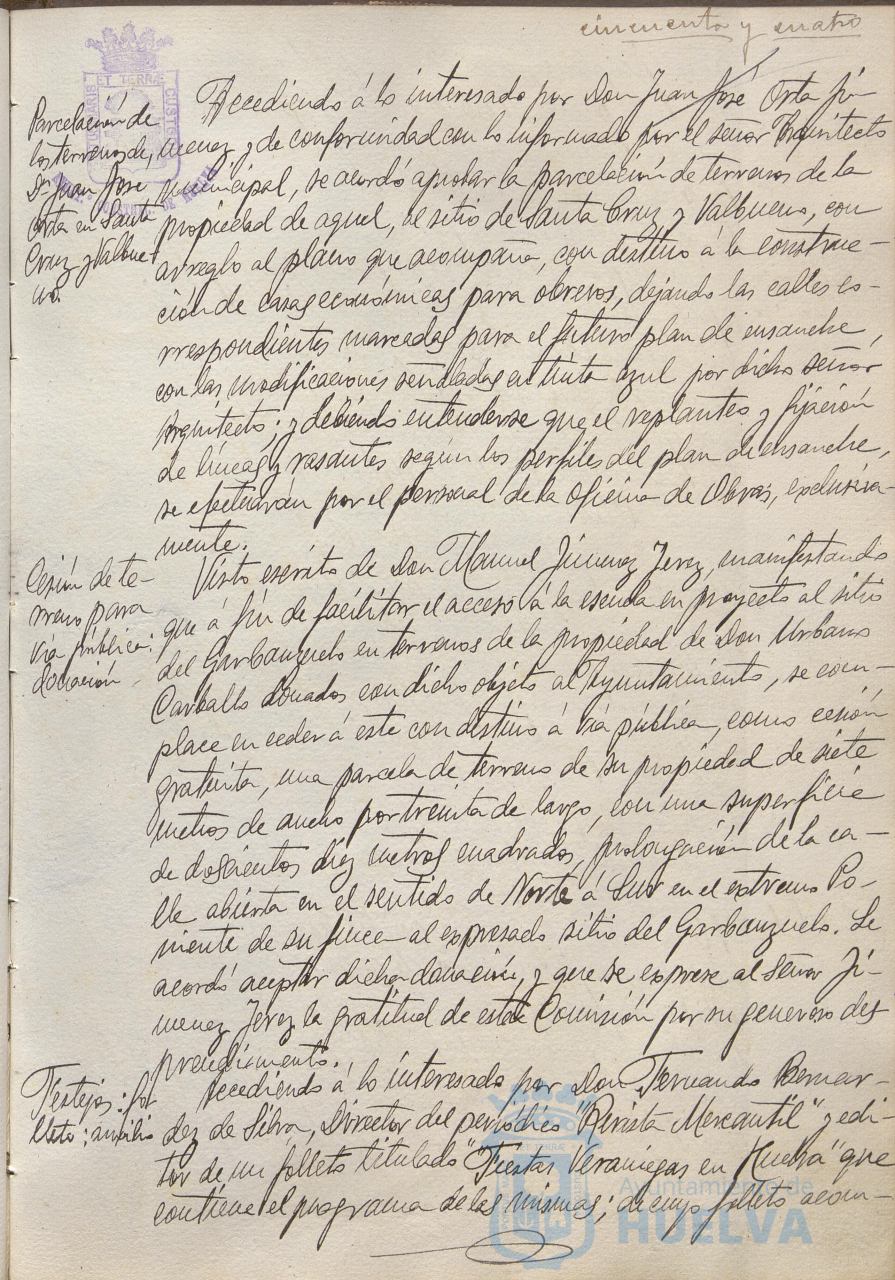 cincuenta y cuatro
Parcelación de
los terrenos de
Dn Juan José
Orta en Santa
Cruz y Valbue-
no.
Accediendo á lo interesado por Don Juan José Orta Ji-
menez y de conformidad con lo informado por el señor Arquitecto
municipal, se acordó aprobar la parcelación de terrenos de la
propiedad de aquel, al sitio de Santa Cruz y Valbueno, con
arreglo al plano que acompaña, con destino á la construc-
ción de casas económicas para obreros, dejando las calles co-
rrespondientes marcadas para el futuro plan de ensanche,
con las modificaciones señaladas en tinta azul por dicho señor
Arquitecto; y debiendo entenderse que el replanteo y fijación
de líneas y rasantes según los perfiles del plan de ensanche,
se efectuarán por el personal de la Oficina de Obras, exclusiva-
mente.
Cesión de te-
rreno para
vía pública:
donación
Visto escrito de Don Manuel Jimenez Jerez, manifestando
que á fin de facilitar el acceso á la escuela en proyecto al sitio
del Garbanzuelo en terrenos de la propiedad de Don Urbano
Carballo donados con dicho objeto al Ayuntamiento, se com-
place en ceder á este con destino á vía pública, como cesión
gratuita, una parcela de terreno de su propiedad de siete
metros de ancho por treinta de largo, con una superficie
de doscientos diez metros cuadrados, prolongación de la ca-
lle abierta en el sentido de Norte á Sur en el extremo Po-
niente de su finca al expresado sitio del Garbanzuelo. Se
acordó aceptar dicha donación, y que se exprese al Señor Ji-
menez Jerez la gratitud de esta Comisión por su generoso des
prendimiento.
Festejos: fo-
lleto: auxilio
Accediendo á lo interesado por Don Fernando Bernar-
dez de Silva, Director del periódico "Revista Mercantil" y edi-
tor de un folleto titulado "Fiestas Veraniegas en Huelva" que
contiene el programa de las mismas; de cuyo folleto acom-
ET TERRÆ
CUSTO
Ayuntamiento de
HUELVA